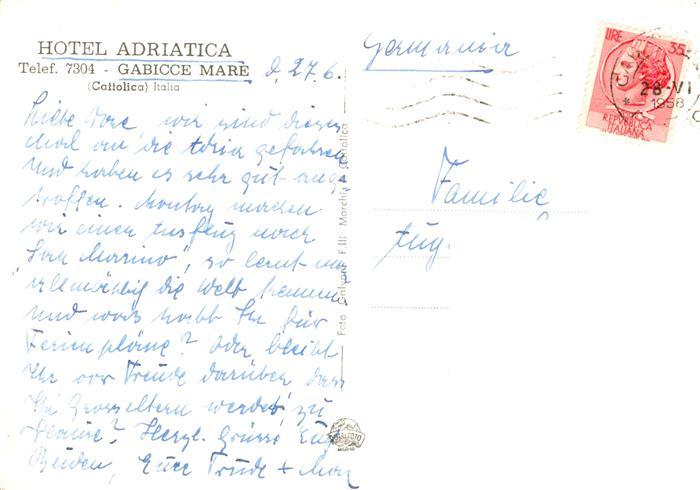 HOTEL ADRIATICA
Telef. 7304 - GABICCE MARE
(Cattolica) Italia
d. 27.6.
Liebe Dore, wir sind dieses
Mal an die Adria gefahren
und haben es sehr gut ange-
troffen. Montag machen
wir einen Ausflug nach
"San Marino", so lernt man
allmählig die Welt kennen
und was habt Ihr für
Ferienpläne? Oder bleibt
Ihr vor Freude darüber dass
Ihr Grosseltern werdet, zu
Hause? Herzl. Grüsse Euch
Beiden, Eure Trude + Max
Foto F.lli Marchi - Cattolica
Germania
Familie
Aug.
LIRE 35
28-VI
1958
REPVBBLICA
ITALIANA